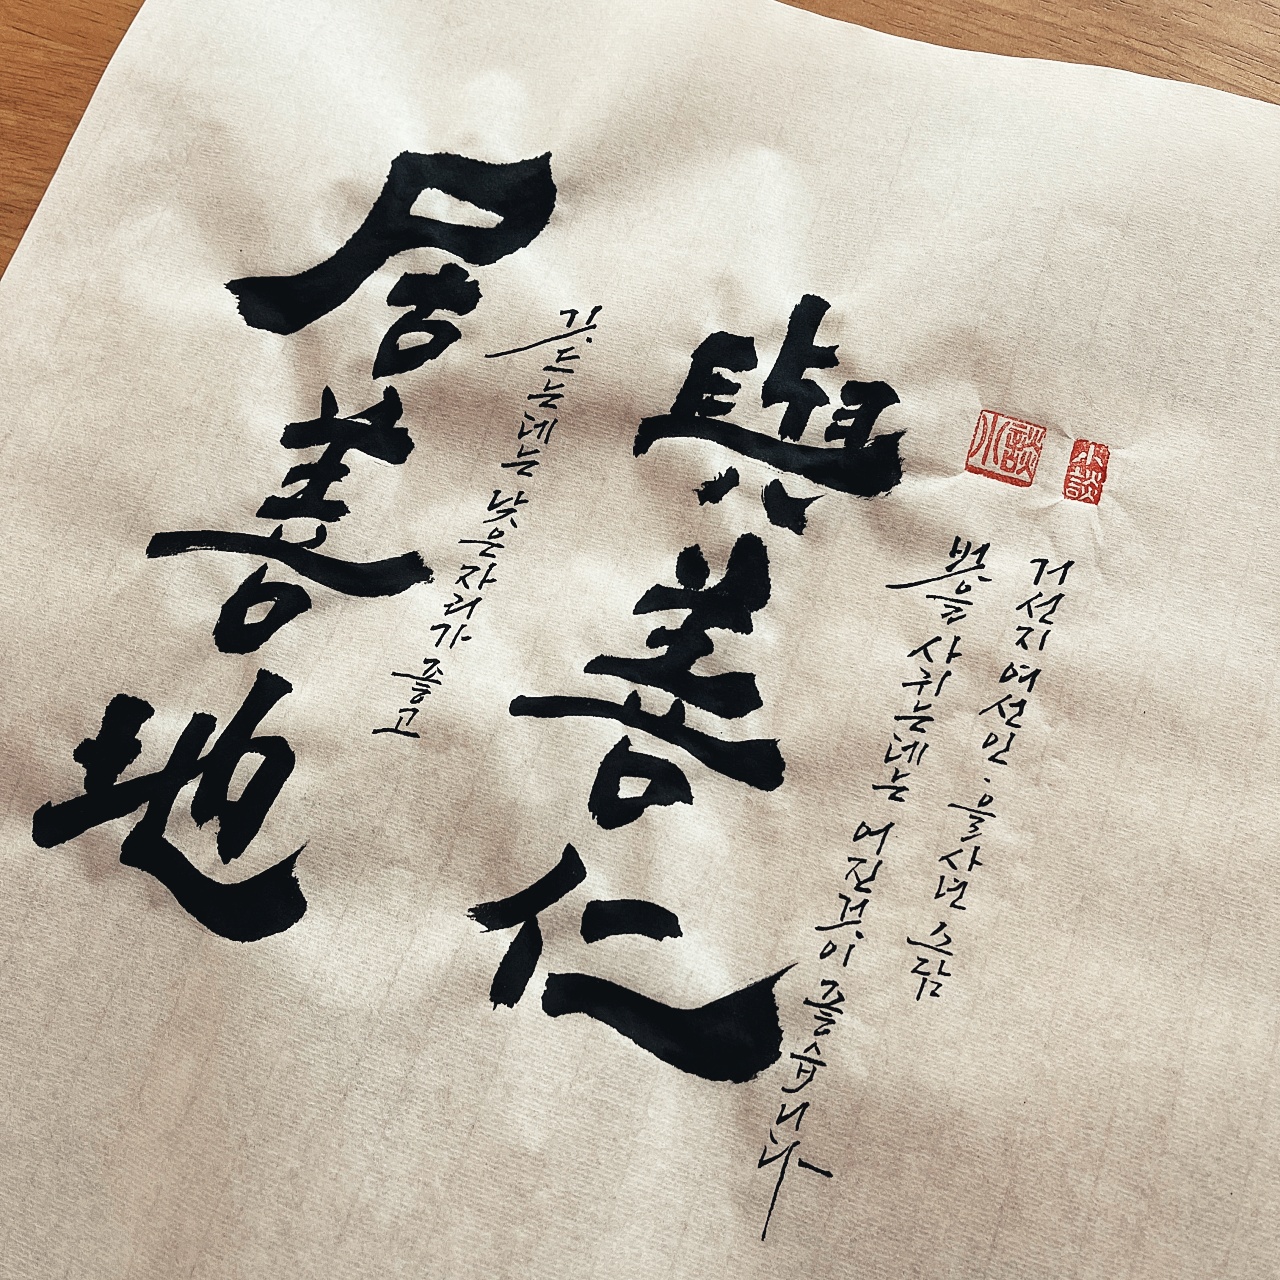 居善地
깃드는데는 낮은자리가 좋고
與善仁
벗을 사귀는데는 어진것이 좋습니다
거선지 여선인 · 을사년 소담
小談
小談